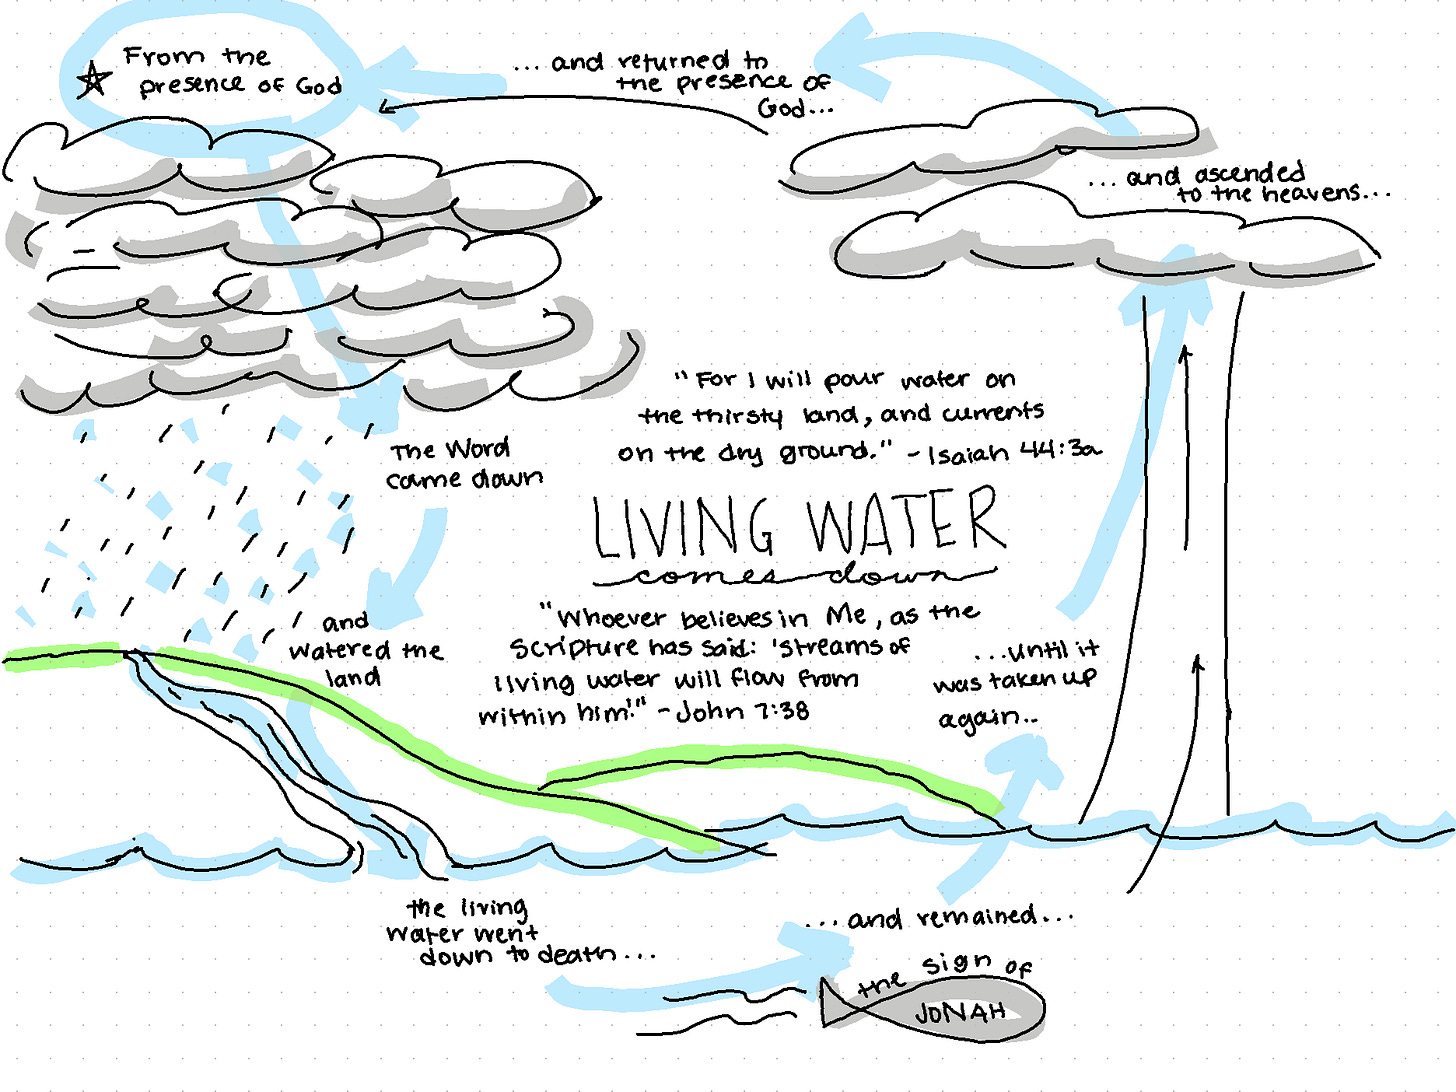 From the
presence of God
The Word
came down
and
watered the
land
the living
water went
down to death...
the sign of
JONAH
...and remained...
...until it
was taken up
again...
...and ascended
to the heavens...
... and returned to
the presence of
God...
"For I will pour water on
the thirsty land, and currents
on the dry ground." - Isaiah 44:3a
LIVING WATER
comes down
"Whoever believes in Me, as the
Scripture has said: 'Streams of
living water will flow from
within him!" - John 7:38